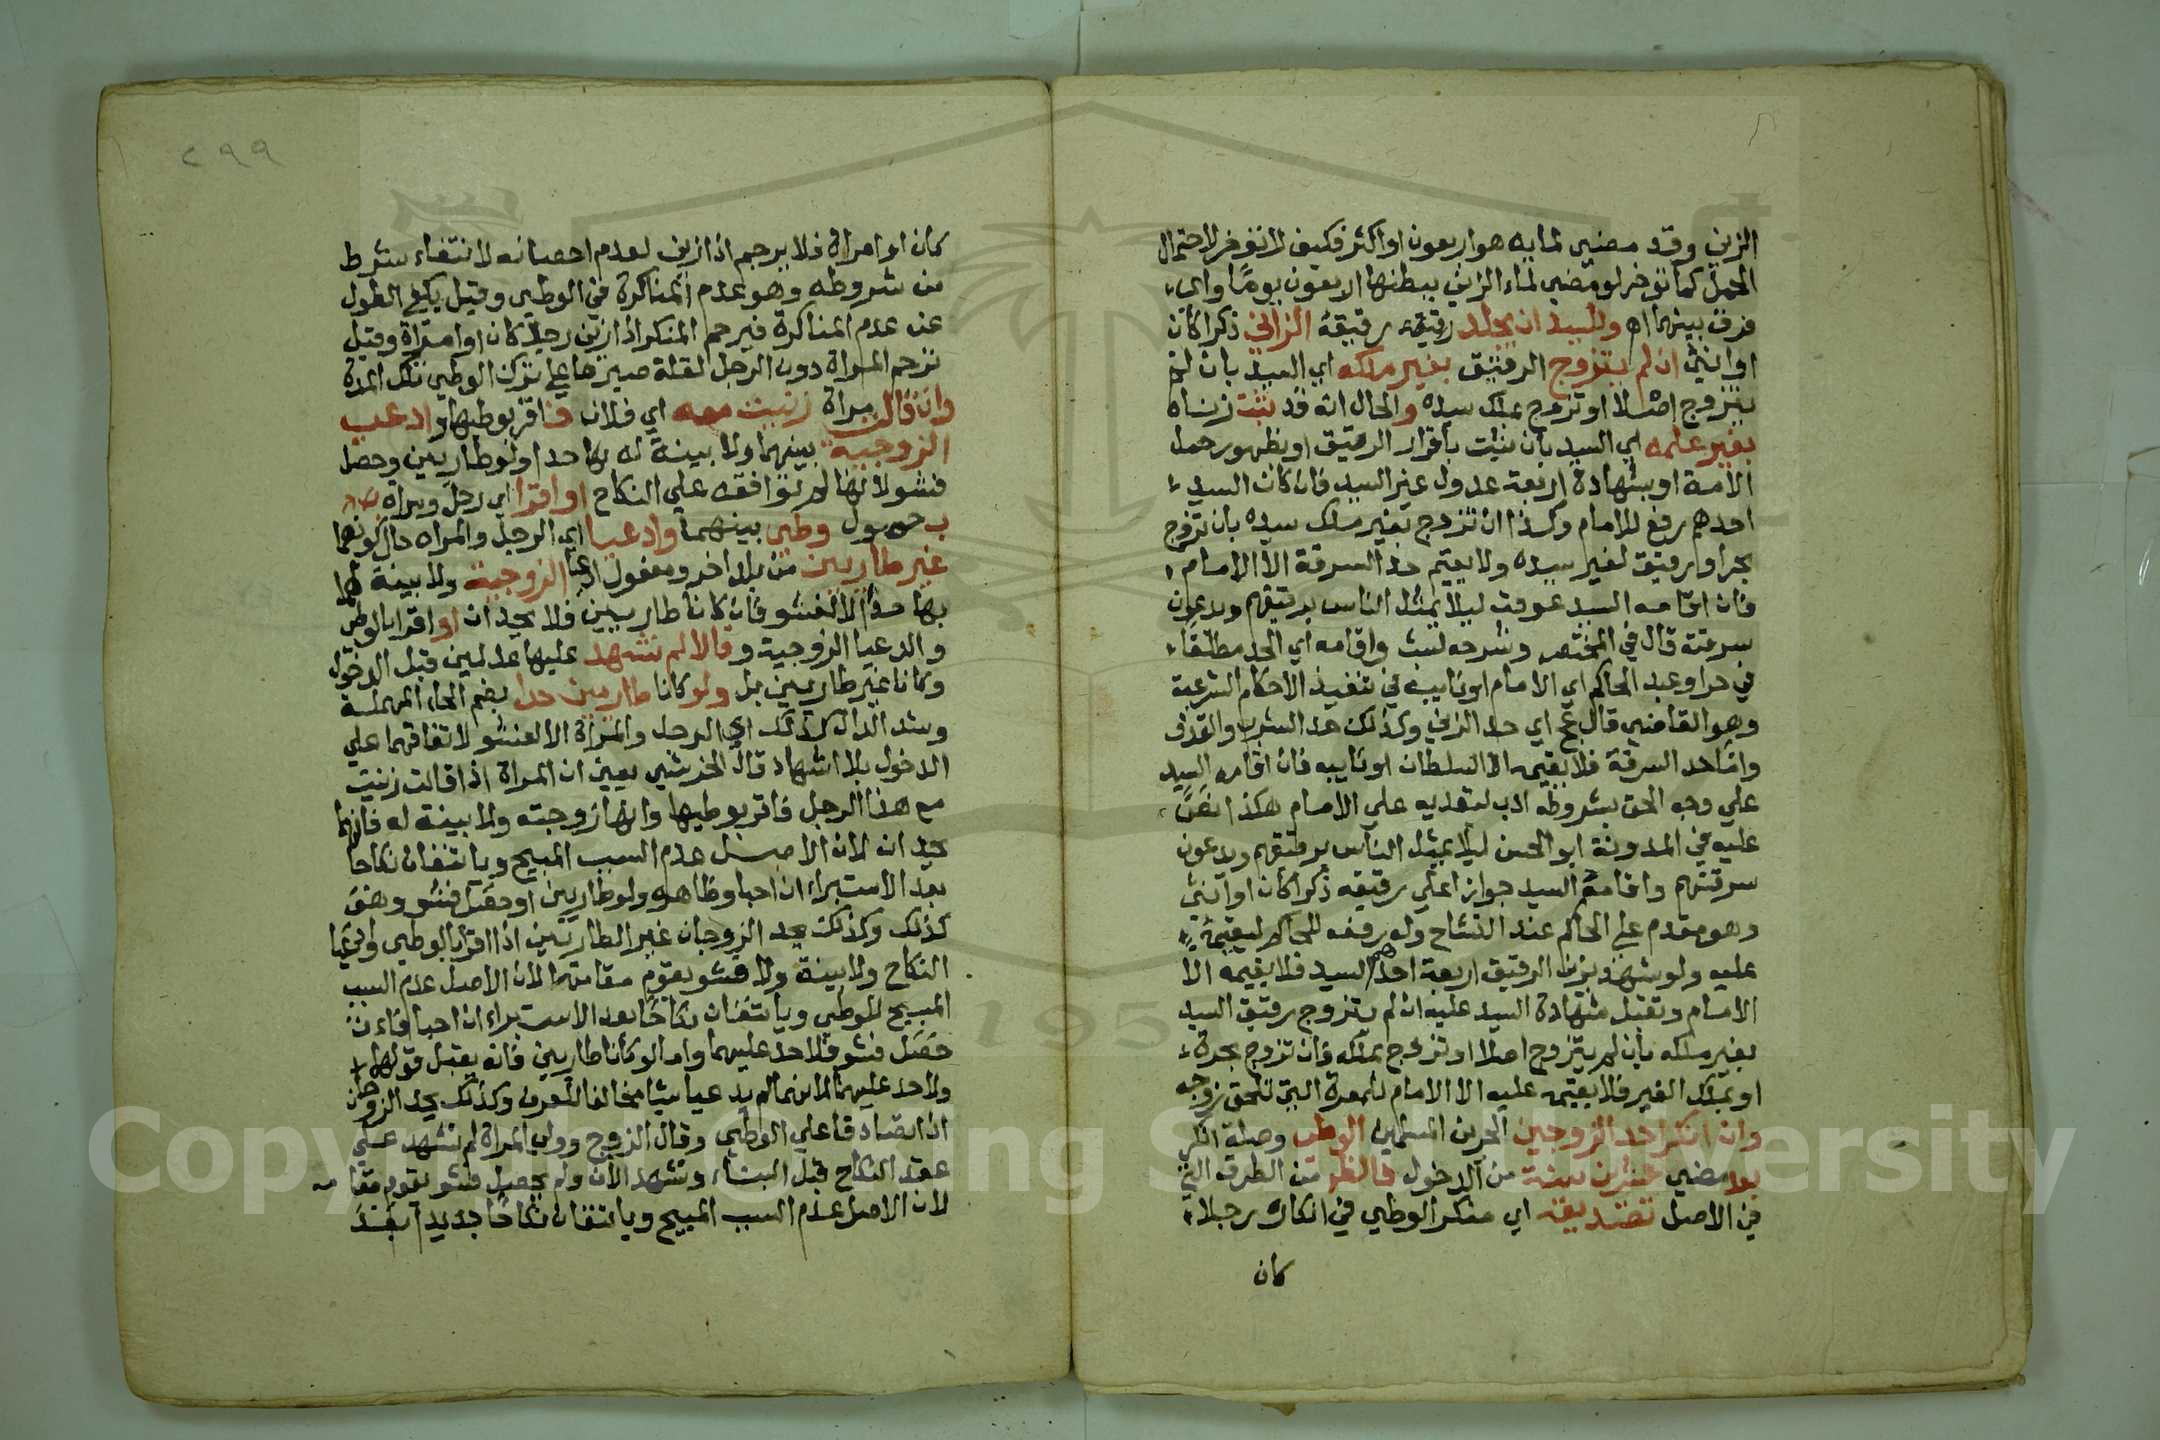 الزني وقد مضي لمايه هو اربعون او اكثر فكيف لا تؤخر لاحتمال
الحمل كما تؤخر لو مضي لماء الزني ببطنها الاربعون يوما واي
فرق بينهما اه وللسيد ان يجلد رقيقه رقيقه الزاني ذكرا كان
او انثي ان لم يتزوج الرقيق بغير ملكه اي السيد بان لم
يتزوج اصلا او تزوج بملك سيده والحال انه قد ثبت زناه
بغير علمه اي السيد بان يثبت باقرار الرقيق او بظهور حمل
الامة او بشهادة اربعة عدول غير السيد فان كان السيد
احدهم رفع للامام وكذا ان تزوج بغير ملك سيده بان تزوج
بحر او برقيق لغير سيده ولا يقيم حد السرقة الا الامام
فان اقامه السيد عوقب ليلا يمثل الناس برقيقهم ويدعون
سرقته قال في المختصر وشرحه لشب واقامه اي الحد مطلقا
في حر او عبد الحاكم اي الامام او نايبه في تنفيذ الاحكام الشرعية
وهو القاضي قال عج اي حد الزني وكذلك حد الشرب والقذف
واما حد السرقة فلا يقيمه الا السلطان او نايبه فان اقامه السيد
علي وجه الحق بشروطه ادب لتعديه علي الامام هكذا نص
عليه في المدونة ابو الحسن ليلا يمثل الناس برقيقهم ويدعون
سرقتهم واقامة السيد جوازا علي رقيقه ذكرا كان او انثي
وهو مقدم علي الحاكم عند التشاح وله رفعه للحاكم ليقيمه
عليه ولو شهد بزنا الرقيق اربعة احدهم السيد فلا يقيمه الا
الامام وتقبل شهادة السيد عليه ان لم يتزوج رقيق السيد
بغير ملكه بان لم يتزوج اصلا او تزوج بملكه فان تزوج بحرة
او بملك الغير فلا يقيمه عليه الا الامام للمعرة التي تلحق زوجه
وان انكر احد الزوجين الحرين المسلمين الوطي وصلة انكر
بعد مضي عشرين سنة من الدخول فالظرف من الطرق التي
في الاصل تصديقه اي منكر الوطي في انكاره رجلا
كان
٢٩٩
كان او امراة فلا يرجم اذا زني لعدم احصانه لانتفاء شرط
من شروطه وهو عدم المناكرة في الوطي وقيل يكفي الطول
عن عدم المناكرة فيرجم المنكر اذا زني رجلا كان او امراة وقيل
ترجم المراة دون الرجل لقلة صبرها علي ترك الوطي تلك المدة
وان قالت مراة زنيت معه اي فلان فاقر بوطيها وادعي
الزوجية بينهما ولا بينة له بها حدا ولو طاريين وحصل
فشو لانها لم توافقه علي النكاح او اقرا اي رجل ومراة
بحصول وطي بينهما وادعيا اي الرجل والمراه حال كونهما
غير طاريين من بلد اخر ومفعول ادعيا الزوجية ولا بينة لهما
بها حدا الا لفشو فان كانا طاريين فلا يحدان او اقرا بالوطي
وادعيا الزوجية وقالا لم نشهد عليها عدلين قبل الدخول
وكانا غير طاريين بل ولو كانا طاريين حدا بضم الحاء المهملة
وشد الدال كذلك اي الرجل والمراة الا لفشو لاتفاقهما علي
الدخول بلا اشهاد قال الخرشي يعني ان المراة اذا قالت زنيت
مع هذا الرجل فاقر بوطيها وانها زوجته ولا بينة له فانهما
يحدان لان الاصل عدم السبب المبيح وياتنفان نكاحا
بعد الاستبراء ان احبا وظاهره ولو طاريين او حصل فشو وهو
كذلك وكذلك يحد الزوجان غير الطاريين اذا اقرا بالوطي وادعيا
النكاح ولا بينة ولا فشو يقوم مقامتها لان الاصل عدم السبب
المبيح للوطي وياتنفان نكاحا بعد الاستبراء ان احبا فان
حصل فشو فلا حد عليهما واما لو كانا طاريين فانه يقبل قولهما
ولا حد عليهما لانهما لم يدعيا شيا مخالفا للعرف وكذلك يحد الزوجان
اذا تصادقا علي الوطي وقال الزوج وولي المراة لم نشهد علي
عقد النكاح قبل البناء ونشهد الان ولم يحصل فشو يقوم مقامه
لان الاصل عدم السبب المبيح وياتنفان نكاحا جديدا بعد
Copyright © King Saud University
195